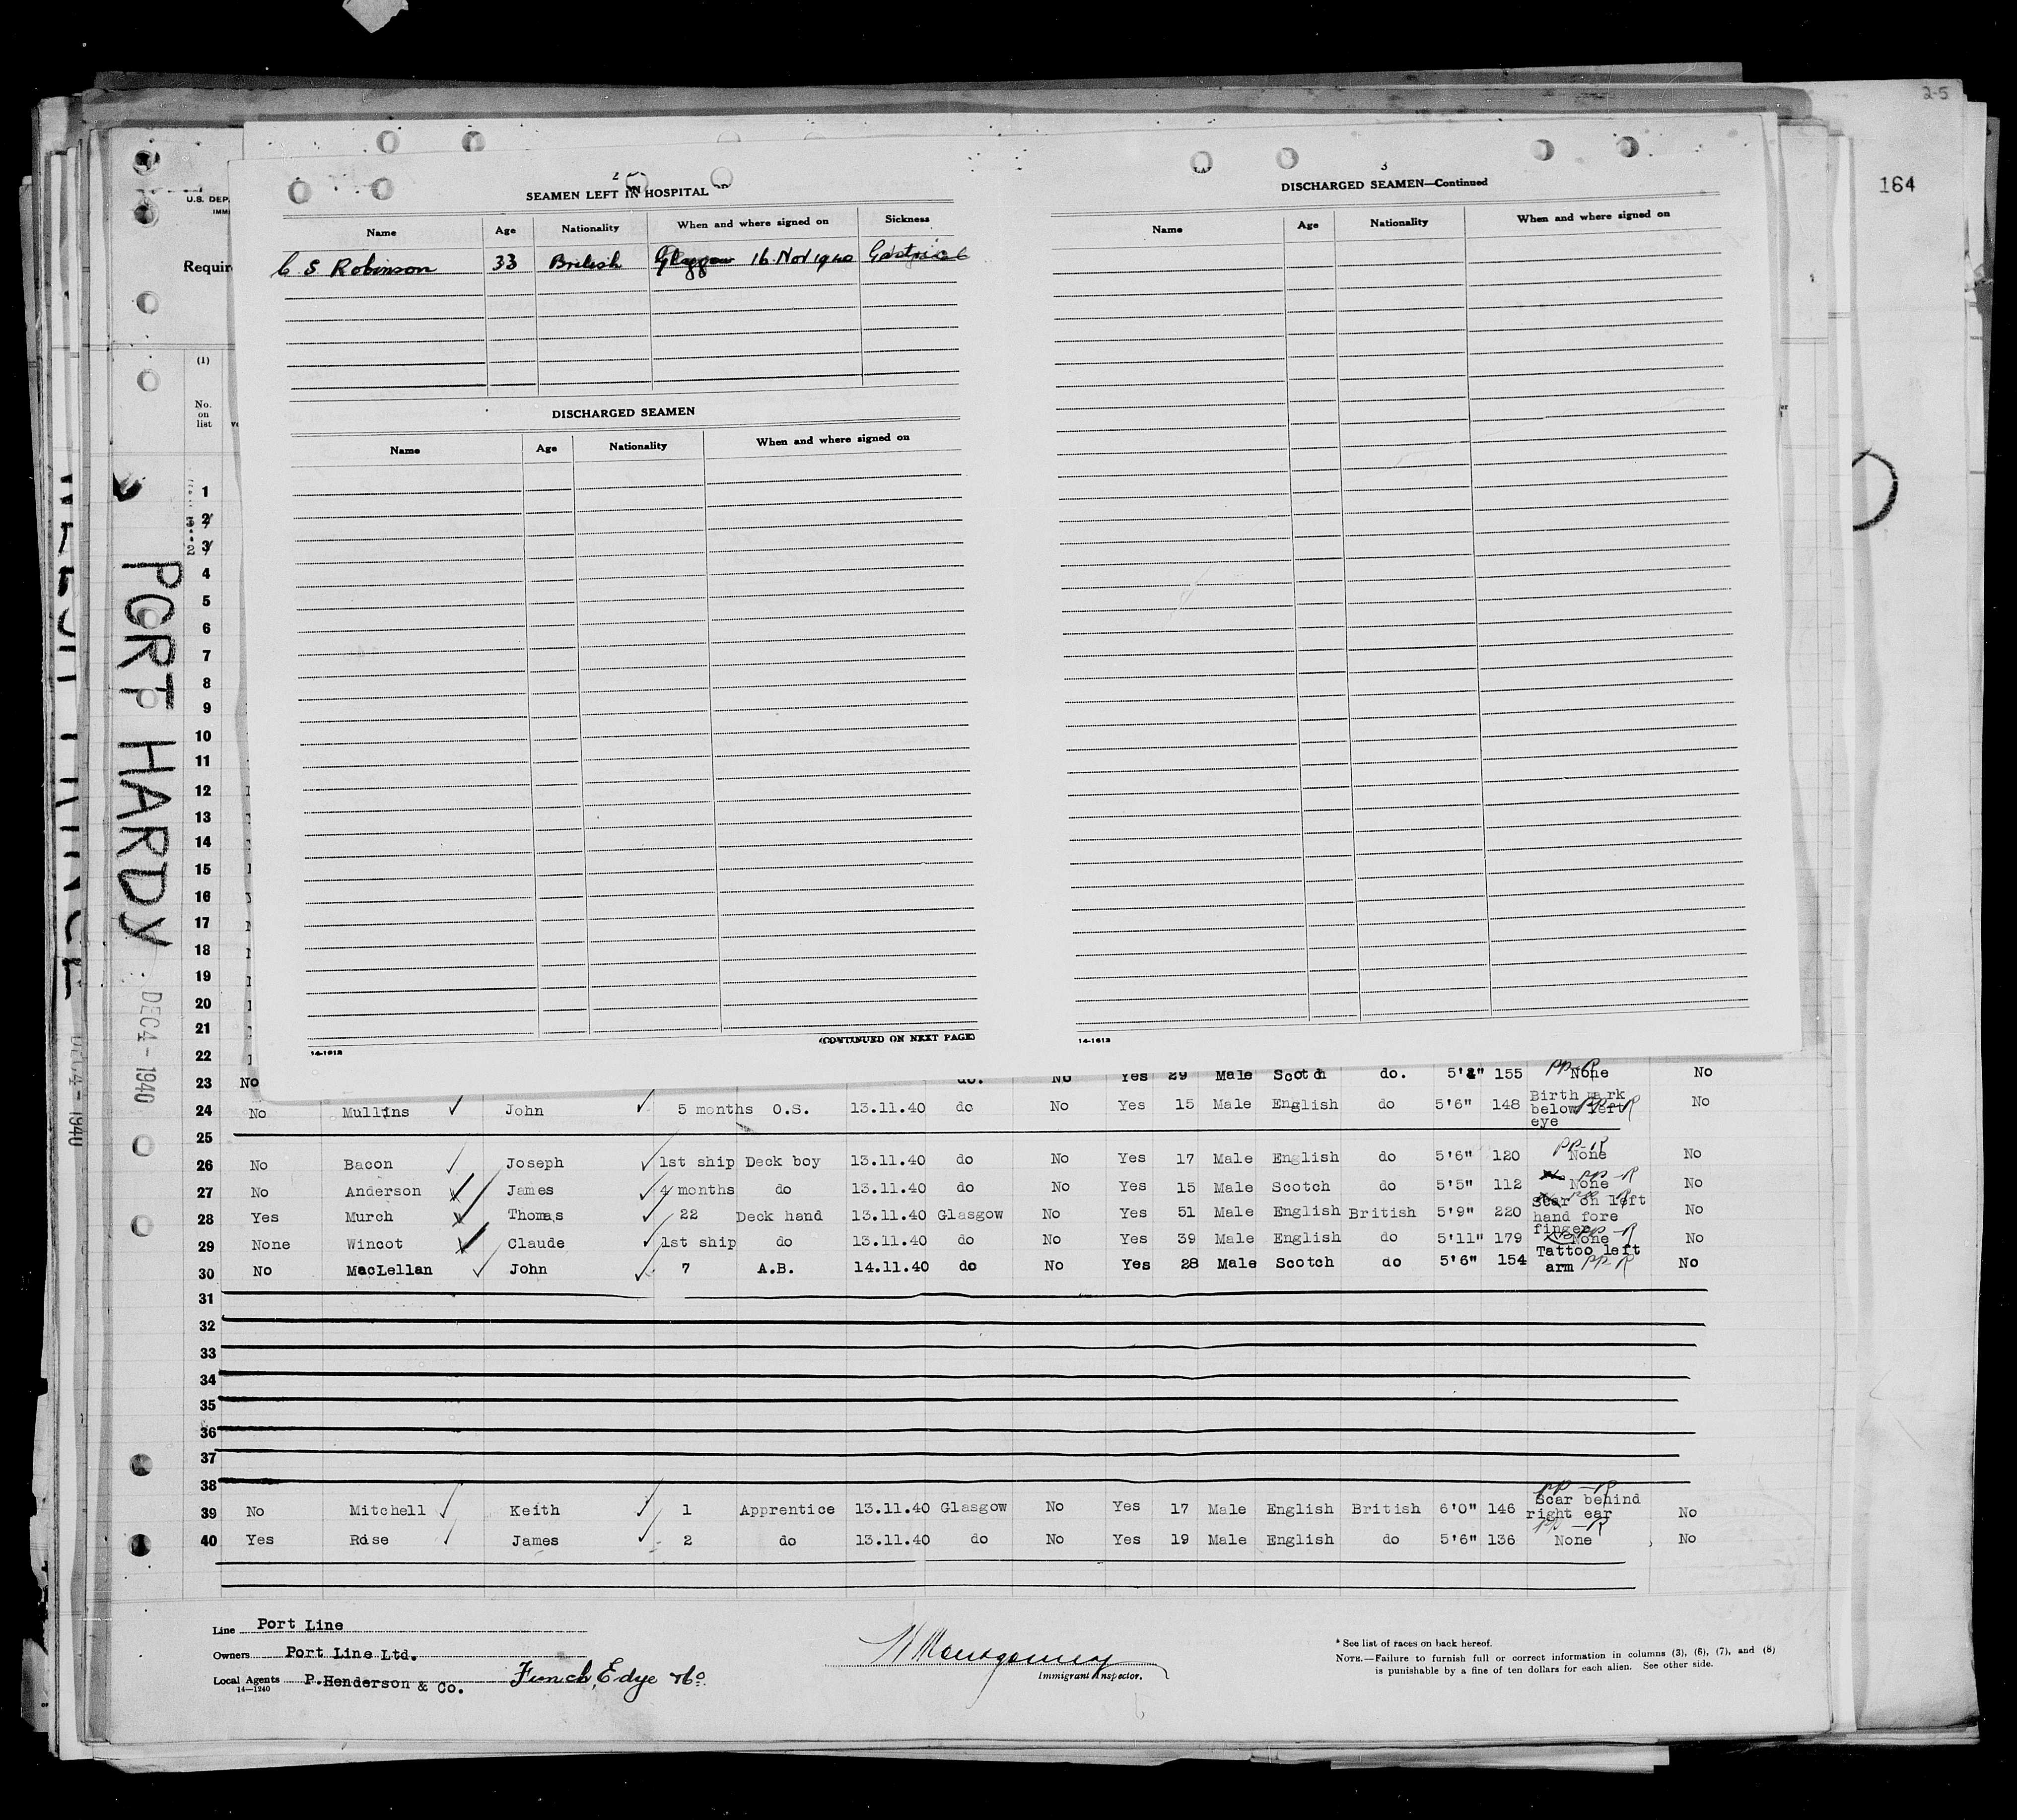 2-5
164
U.S. DEP
IMMI
Requir
2
SEAMEN LEFT IN HOSPITAL
Name Age Nationality When and where signed on Sickness
C S. Robinson 33 British Glasgow 16 Nov 1940
DISCHARGED SEAMEN
Name Age Nationality When and where signed on
(CONTINUED ON NEXT PAGE)
14-1613
3
DISCHARGED SEAMEN—Continued
Name Age Nationality When and where signed on
14-1613
(1)
No.
on
list
PORT HARDY
DEC 4 - 1940
DEC 4 - 1940
1
2
3
4
5
6
7
8
9
10
11
12
13
14
15
16
17
18
19
20
21
22
23 No do. No Yes 29 Male Scotch do. 5'8" 155 None No
24 No Mullins John 5 months O.S. 13.11.40 do No Yes 15 Male English do 5'6" 148 Birth mark below left eye No
25
26 No Bacon Joseph 1st ship Deck boy 13.11.40 do No Yes 17 Male English do 5'6" 120 None No
27 No Anderson James 4 months do 13.11.40 do No Yes 15 Male Scotch do 5'5" 112 None No
28 Yes Murch Thomas 22 Deck hand 13.11.40 Glasgow No Yes 51 Male English British 5'9" 220 Scar on left hand fore finger No
29 None Wincot Claude 1st ship do 13.11.40 do No Yes 39 Male English do 5'11" 179 None No
30 No MacLellan John 7 A.B. 14.11.40 do No Yes 28 Male Scotch do 5'6" 154 Tattoo left arm PP-R No
31
32
33
34
35
36
37
38
39 No Mitchell Keith 1 Apprentice 13.11.40 Glasgow No Yes 17 Male English British 6'0" 146 PP-R Scar behind right ear No
40 Yes Rose James 2 do 13.11.40 do No Yes 19 Male English do 5'6" 136 PP-R None No
Line Port Line
Owners Port Line Ltd.
Local Agents P. Henderson & Co. Funch, Edye & Co.
14—1240
Montgomery
Immigrant Inspector.
* See list of races on back hereof.
NOTE.—Failure to furnish full or correct information in columns (3), (6), (7), and (8)
is punishable by a fine of ten dollars for each alien. See other side.